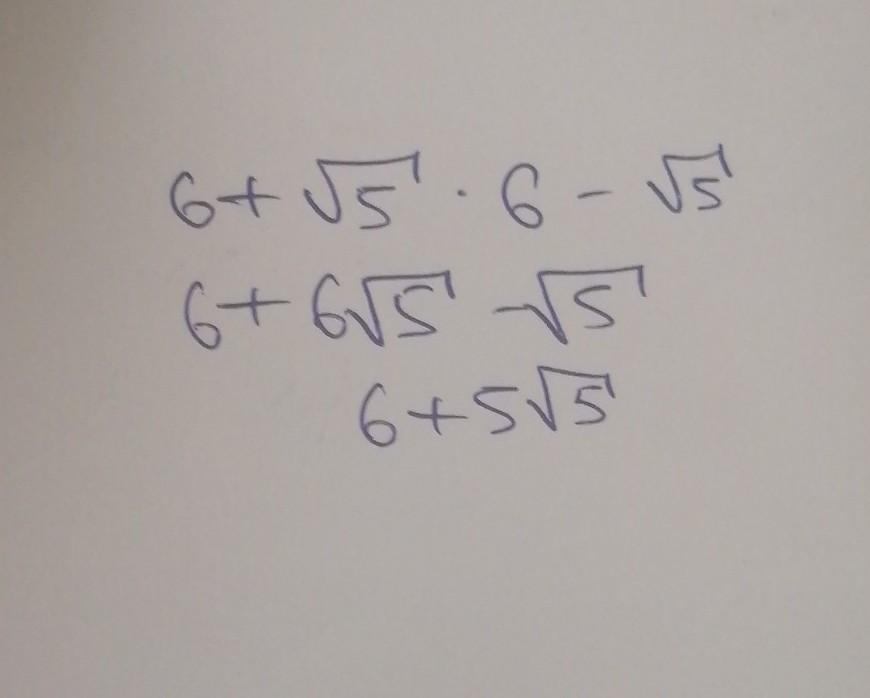 6 + √5 · 6 - √5
6 + 6√5 - √5
6 + 5√5